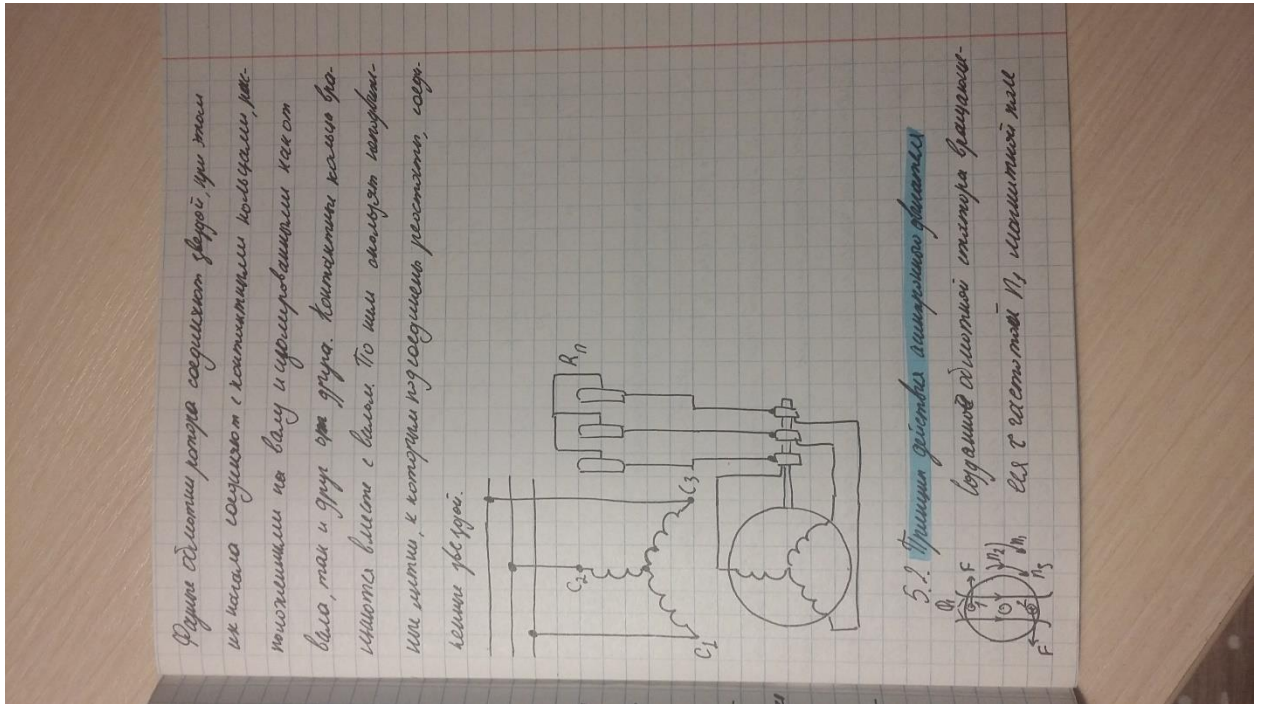 Фазные обмотки ротора соединяют звездой, при этом
их начала соединяют с контактными кольцами, рас-
положенными на валу и изолированными как от
вала, так и друг от друга. Контактные кольца вра-
щаются вместе с валом. По ним скользят неподвиж-
ные щетки, к которым подсоединены реостаты, соед-
ненные звездой.
C2
C1
C3
Rп
5.2 Принцип действия асинхронного двигателя
F
n2
n1
F
Созданное обмоткой статора вращающе-
еся с частотой n1 магнитное поле